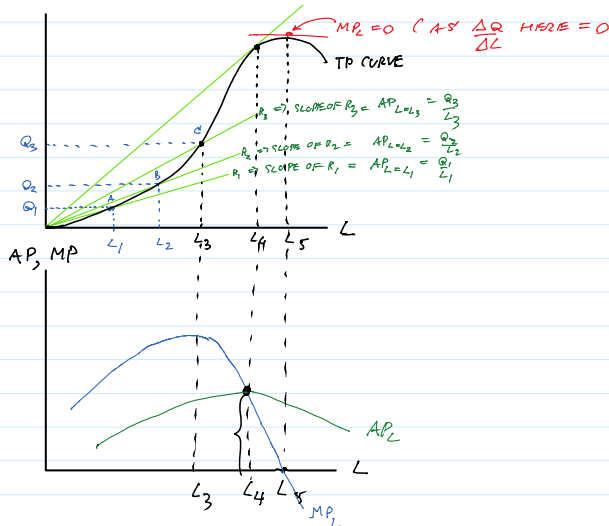 MPL = 0 ( AS ΔQ/ΔL HERE = 0
TP CURVE
R3 => SLOPE OF R3 = APL=L3 = Q3/L3
C
Q3
R2 => SLOPE OF R2 = APL=L2 = Q2/L2
B
Q2
R1 => SLOPE OF R1 = APL=L1 = Q1/L1
A
Q1
L1 L2 L3 L4 L5 L
AP, MP
APL
L
L3 L4 L5
MPL